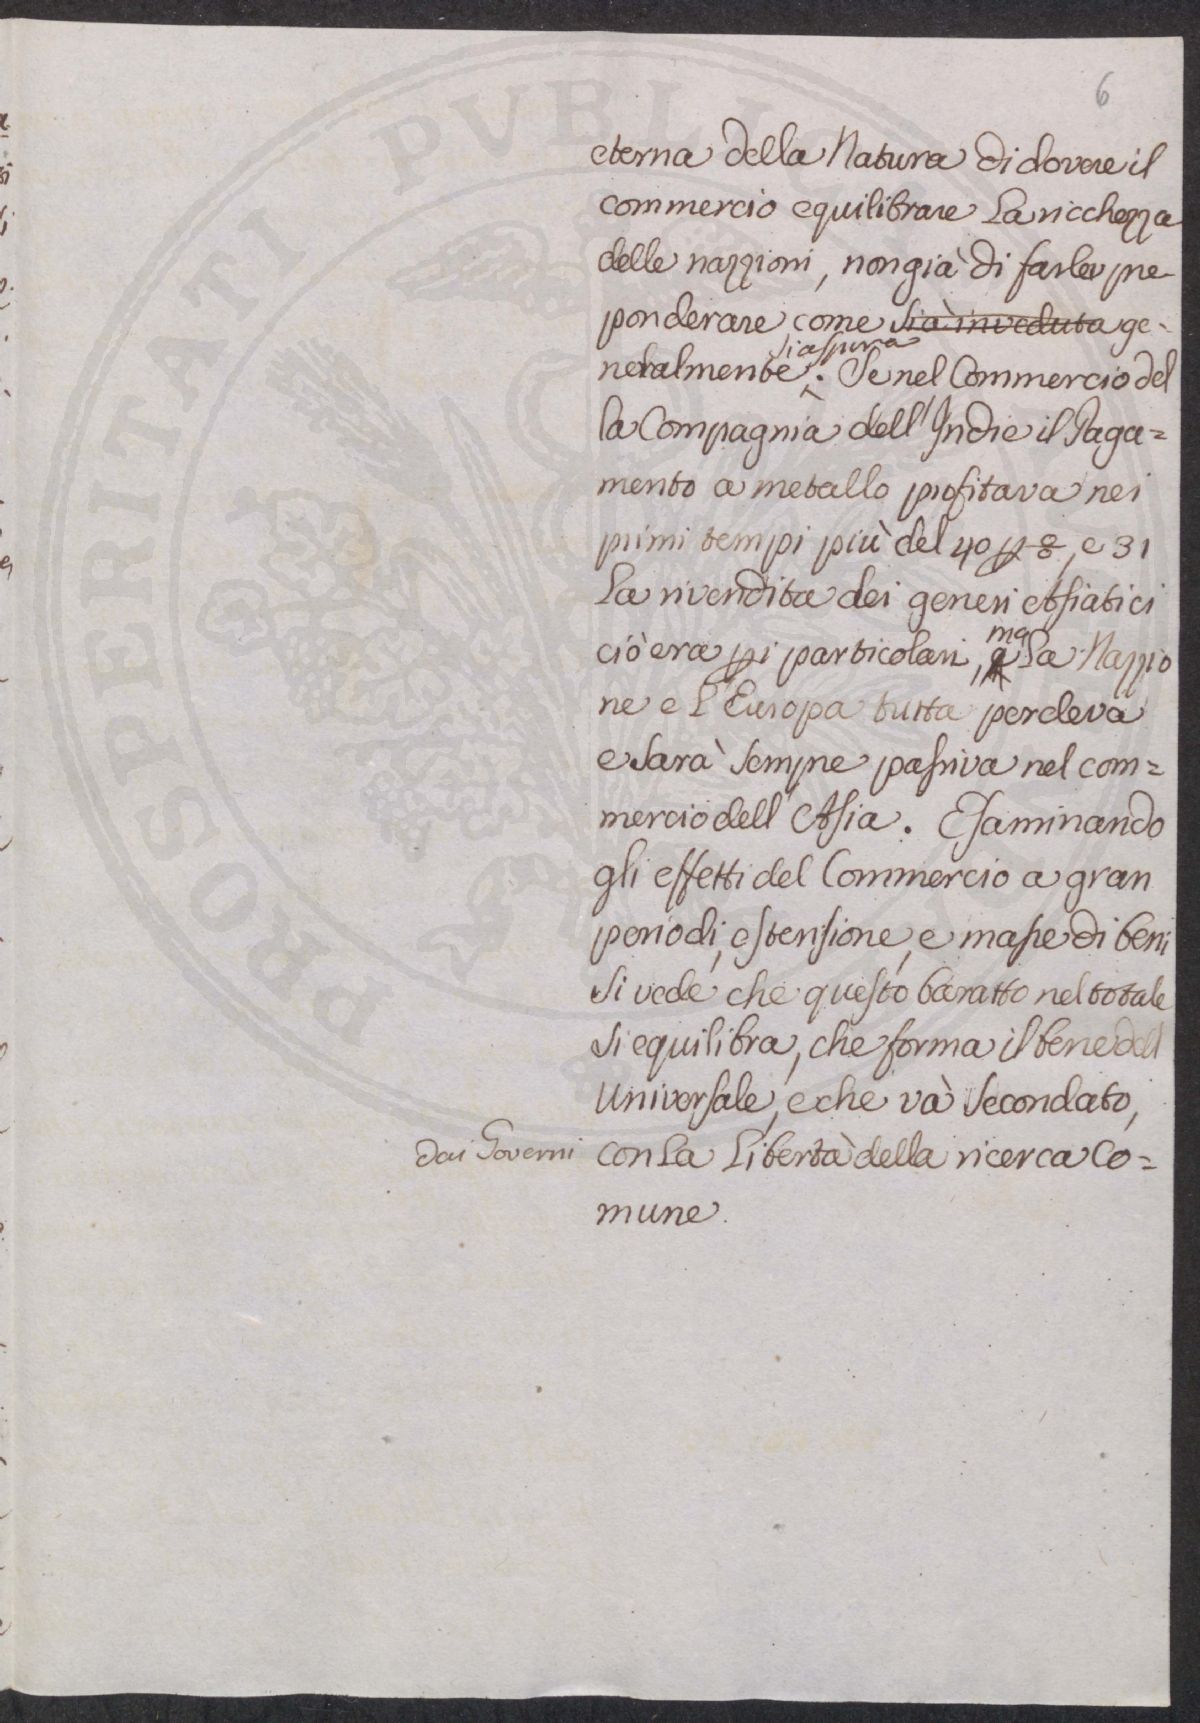 6
eterna della Natura di dovere il
commercio equilibrare la ricchezza
delle nazzioni, non già di farla pre
ponderare come si à in veduta ge-
siaspira
neralmente. Se nel Commercio del
la Compagnia dell'Indie il Paga=
mento a metallo profitava nei
primi tempi più del 40 p%, e 31
la rivendita dei generi Asiatici
ciò era pi particolari, ma la Nazzio
ne e l'Europa tutta perdeva
e sarà sempre passiva nel com=
mercio dell'Asia. Esaminando
gli effetti del Commercio a gran
periodi, estensione, e masse di beni
si vede che questo baratto nel totale
si equilibra, che forma il bene dell
Universale, e che và secondato,
dai Governi con la libertà della ricerca co=
mune.
PROSPERITATI PVBLICAE